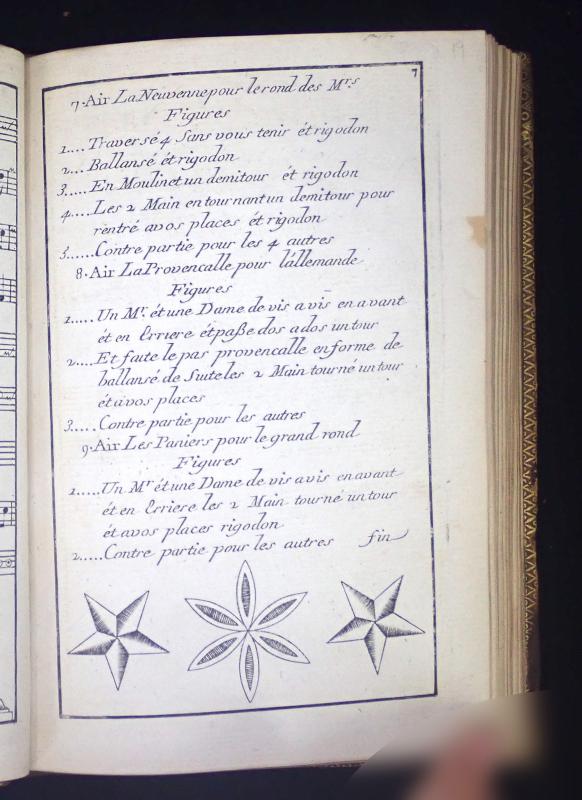 7
7. Air La Neuvenne pour le rond des Mrs
Figures
1.... Traversé 4 Sans vous tenir ét rigodon
2... Ballansé ét rigodon
3.... En Moulinet un demitour ét rigodon
4.... Les 2 Main en tournant un demitour pour
rentré avos places ét rigodon
5...... Contre partie pour les 4 autres
8. Air La Provencalle pour l'allemande
Figures
1..... Un Mr. ét une Dame de vis a vis en avant
ét en Erriere ét paße dos a dos un tour
2..... Et faite le pas provencalle en forme de
ballansé de Suite les 2 Main tourné un tour
ét avos places
3..... Contre partie pour les autres
9. Air Les Paniers pour le grand rond
Figures
1..... Un Mr ét une Dame de vis avis en avant
ét en Erriere les 2 Main tourné un tour
ét avos places rigodon
2..... Contre partie pour les autres fin